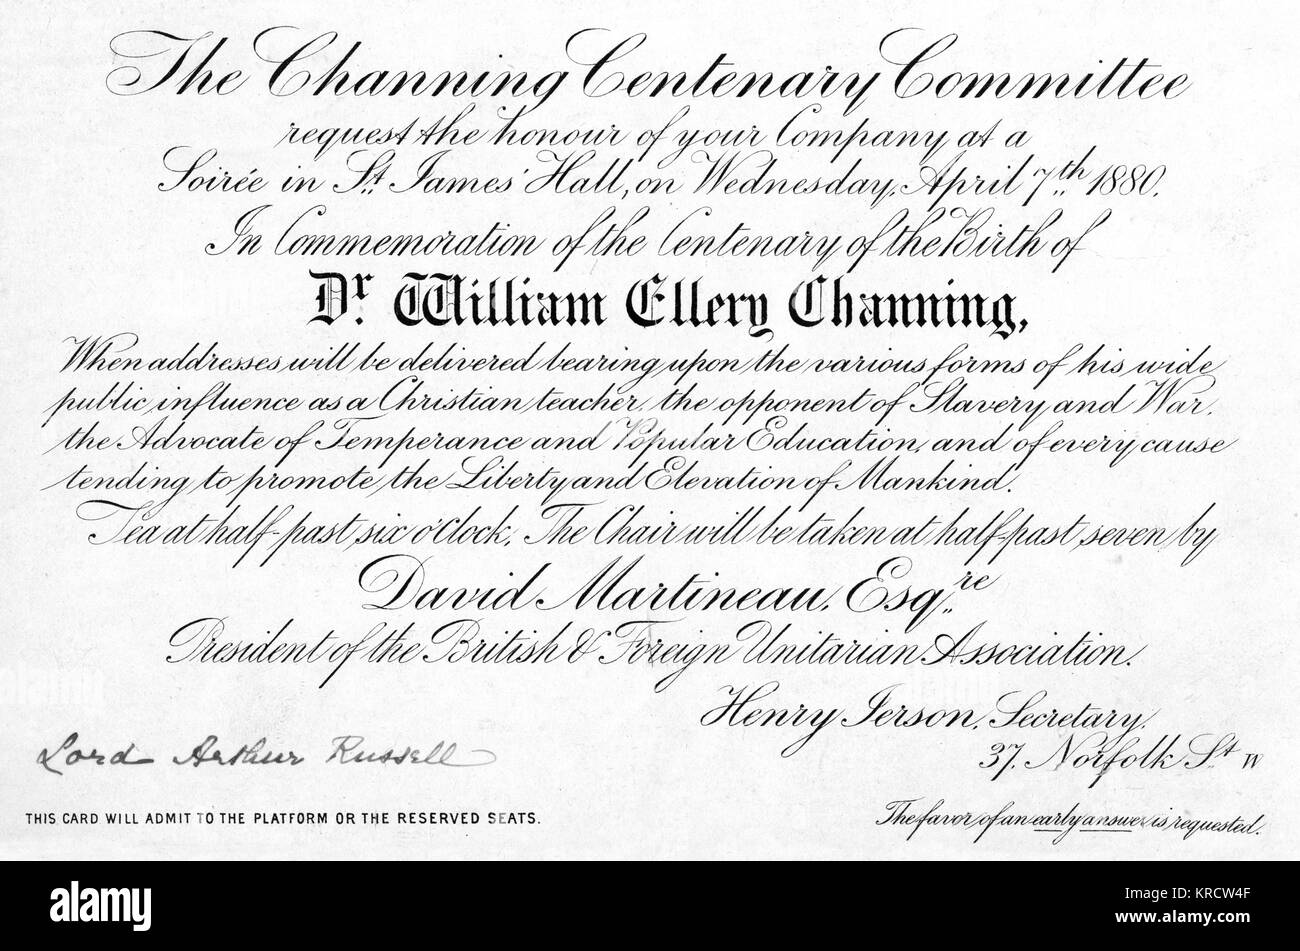 The Channing Centenary Committee
request the honour of your Company at a
Soirée in St. James' Hall, on Wednesday, April 7th 1880.
In Commemoration of the Centenary of the Birth of
Dr. William Ellery Channing,
When addresses will be delivered bearing upon the various forms of his wide
public influence as a Christian teacher, the opponent of Slavery and War,
the Advocate of Temperance and Popular Education, and of every cause
tending to promote the Liberty and Elevation of Mankind.
Tea at half-past six o'Clock. The Chair will be taken at half-past seven by
David Martineau, Esqre
President of the British & Foreign Unitarian Association.
Henry Ierson, Secretary.
37, Norfolk St. W
Lord Arthur Russell
THIS CARD WILL ADMIT TO THE PLATFORM OR THE RESERVED SEATS.
The favor of an early answer is requested.
alamy
Image ID: KRCW4F
www.alamy.com